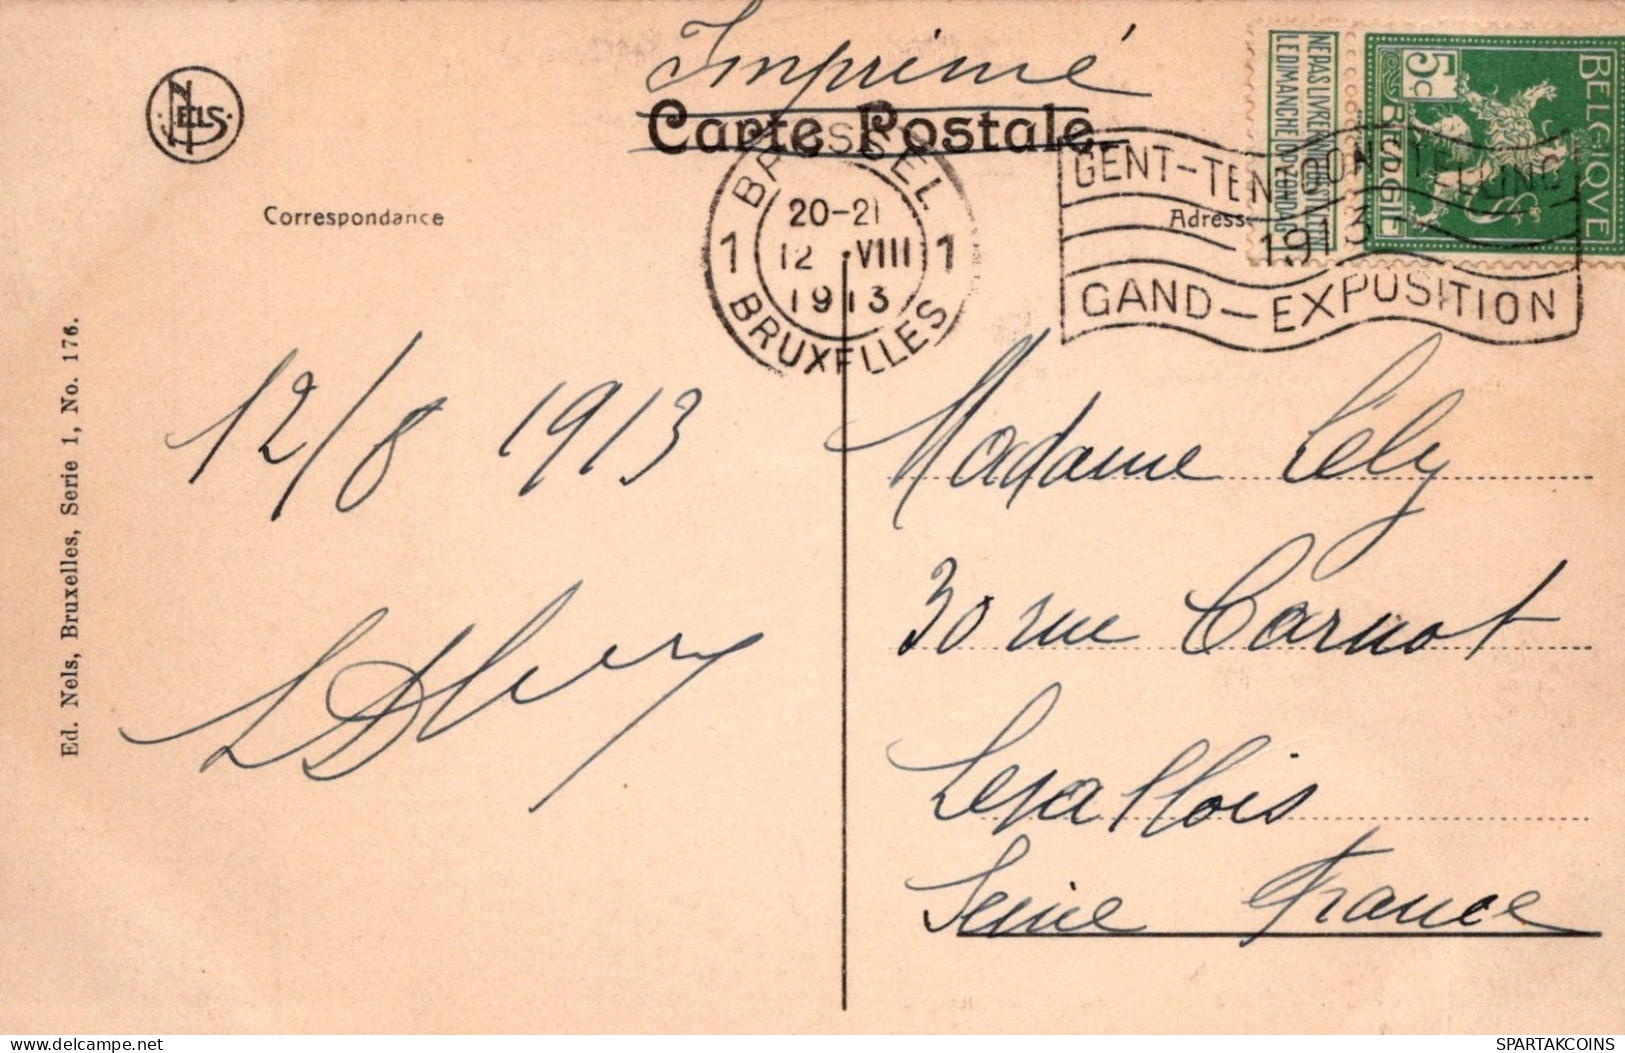 Imprimé
Carte Postale
NELS
Correspondance
Adress
BRUSSEL
20-21
1 12 VIII 1
1913
BRUXELLES
GENT-TENTOONSTELLING
1913
GAND-EXPOSITION
NE PAS LIVRER
LE DIMANCHE
BELGIQVE
BELGIË
5c
12/8 1913
Madame Lély
30 rue Carnot
Levallois
Seine France
Ed. Nels, Bruxelles, Serie 1, No. 176.
delcampe.net
SPARTAKCOINS